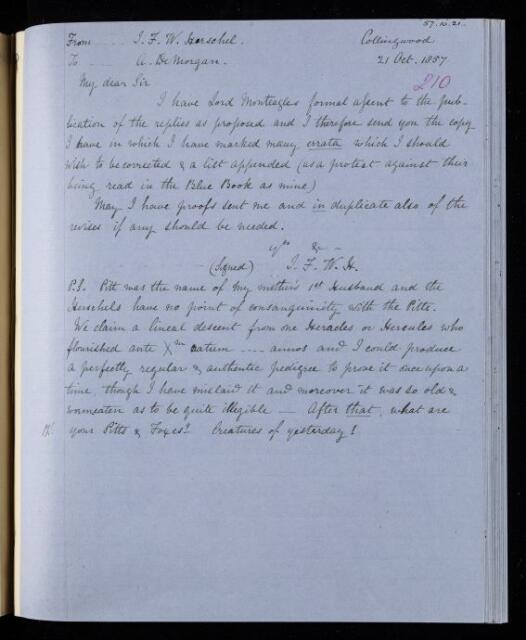 57.10.21.
From .... J. F. W. Herschel. Collingwood
To ---- A. De Morgan. 21 Oct. 1857
210
My dear Sir
I have Lord Monteagles formal assent to the pub-
lication of the replies as proposed and I therefore send you the copy
I have in which I have marked many errata which I should
wish to be corrected & a list appended (as a protest against their
being read in the Blue Book as mine)
May I have proofs sent me and in duplicate also of the
revises if any should be needed.
yrs &c -
(Signed) J. F. W. H.
P.S. Pitt was the name of my mother's 1st Husband and the
Herschels have no point of consanguinity with the Pitts.
We claim a lineal descent from one Heracles or Hercules who
flourished ante Xm natum .... annos and I could produce
a perfectly regular & authentic pedigree to prove it once upon a
time, though I have mislaid it and moreover it was so old &
wormeaten as to be quite illegible — After that, what are
your Pitts & Foxes? Creatures of yesterday!